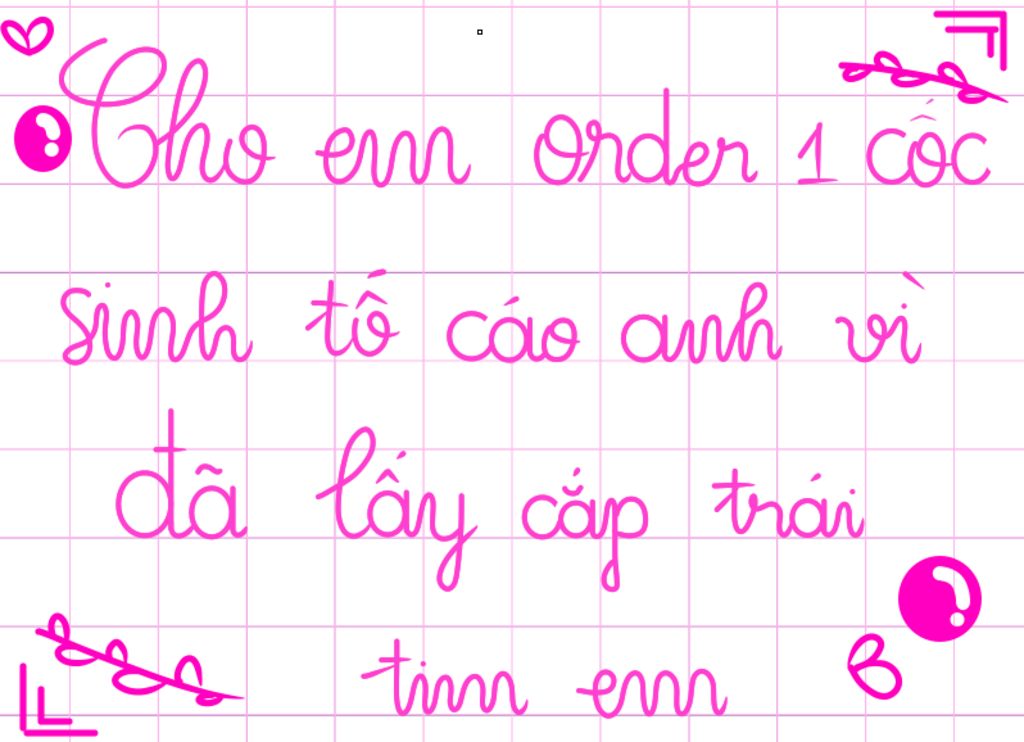 Cho em order 1 cốc
sinh tố cáo anh vì
đã lấy cắp trái
tim em